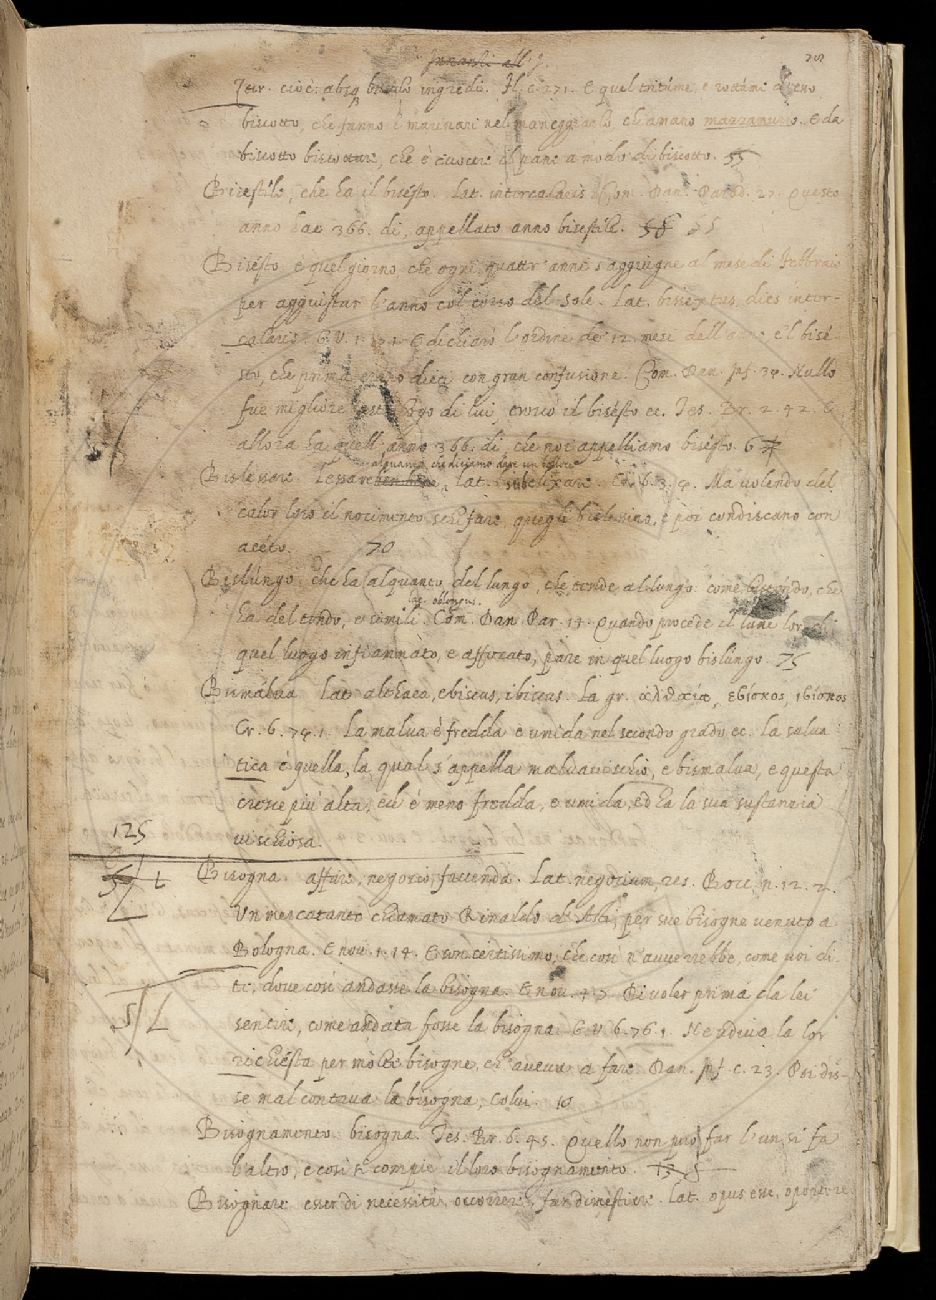 Iter. cioè. absq biscoto ingredi. Fl. c. 271. E quel tritume, e rottami
biscotto, che fanno i marinari nel maneggiarlo chiamano mazzamurro. E da
biscotto biscottare, che è cuocere il pane a modo di biscotto. 55
Bisestile, che ha il bisesto. Lat. intercalaris Com. Dan. Parad. 27. Questo
anno hae 366. di, appellato anno bisestile. 58 55
Bisésto è quel giorno che ogni quattr'anni s'aggiugne al mese di Febbraio
per aggiustar l'anno col corso del sole. Lat. bissextus, dies inter-
calaris. G. V. E dichiarò l'ordine de' 12. mesi dell' e'l bisé-
sto, che prima dieci con gran confusione. Com. Dan. Nullo
fue migliore di lui, trovò il bisésto ec. Tes. Br. 2. 42. E
allora ha quell'anno 366. di, che noi appelliamo bisésto. 67
alquanto, che diciamo dare un bollore
Bislessare Lessare ben bene, Lat. sub elixare. Cr. 6. Ma volendo del
calor loro il nocimento schifare, quegli bislessino, e poi condiscano con
acéto. 70
Bislungo che ha alquanto del lungo, che tende al lungo come che
lat. oblongus.
ha del tondo, e simili. Com. Dan. Par. 14. Quando procede il lume lor di
quel luogo infiammàto, e affocato, pare in quel luogo bislungo. 75
Bismálva Lat. althaea, ebiscus, ibiscus. La gr. ἀλθαία, εβίσκος, ιβίσκος
Cr. 6. 74. 1. La malva è fredda e umida nel secondo grado ec. la salva
tica è quella, la qual s'appella malvavischio, e bismalva, e questa
cresce più alta, ed è meno fredda, e umida, ed ha la sua sustanzia
125
vischiosa.
Bisogna. affare, negozio, faccenda. Lat. negotium, res. Bocc. n. 12. 2.
Un mercatante chiamato Rinaldo d'Asti, per sue bisogne venuto a
Bologna. E nov. 1. 14. E son certissimo, che così n'avverrebbe, come voi di-
te, dove così andasse la bisogna. E nov. Di voler prima da lei
sentire, come andata fosse la bisogna. G. V. 6. 76. 1. Ne udiva la lor
richiésta per molte bisogne, ch'aveva a fare Dan. Inf. c. 23. Poi dis-
se mal contava la bisogna, Colui. 10
Bisognamento. bisogna. Tes. Br. 6. 45. Quello non può far l'un, si fa
l'altro, e così si compie il loro bisognamento.
Bisognare esser di necessità, occorrere, far di mestiere. Lat. opus esse, oportere